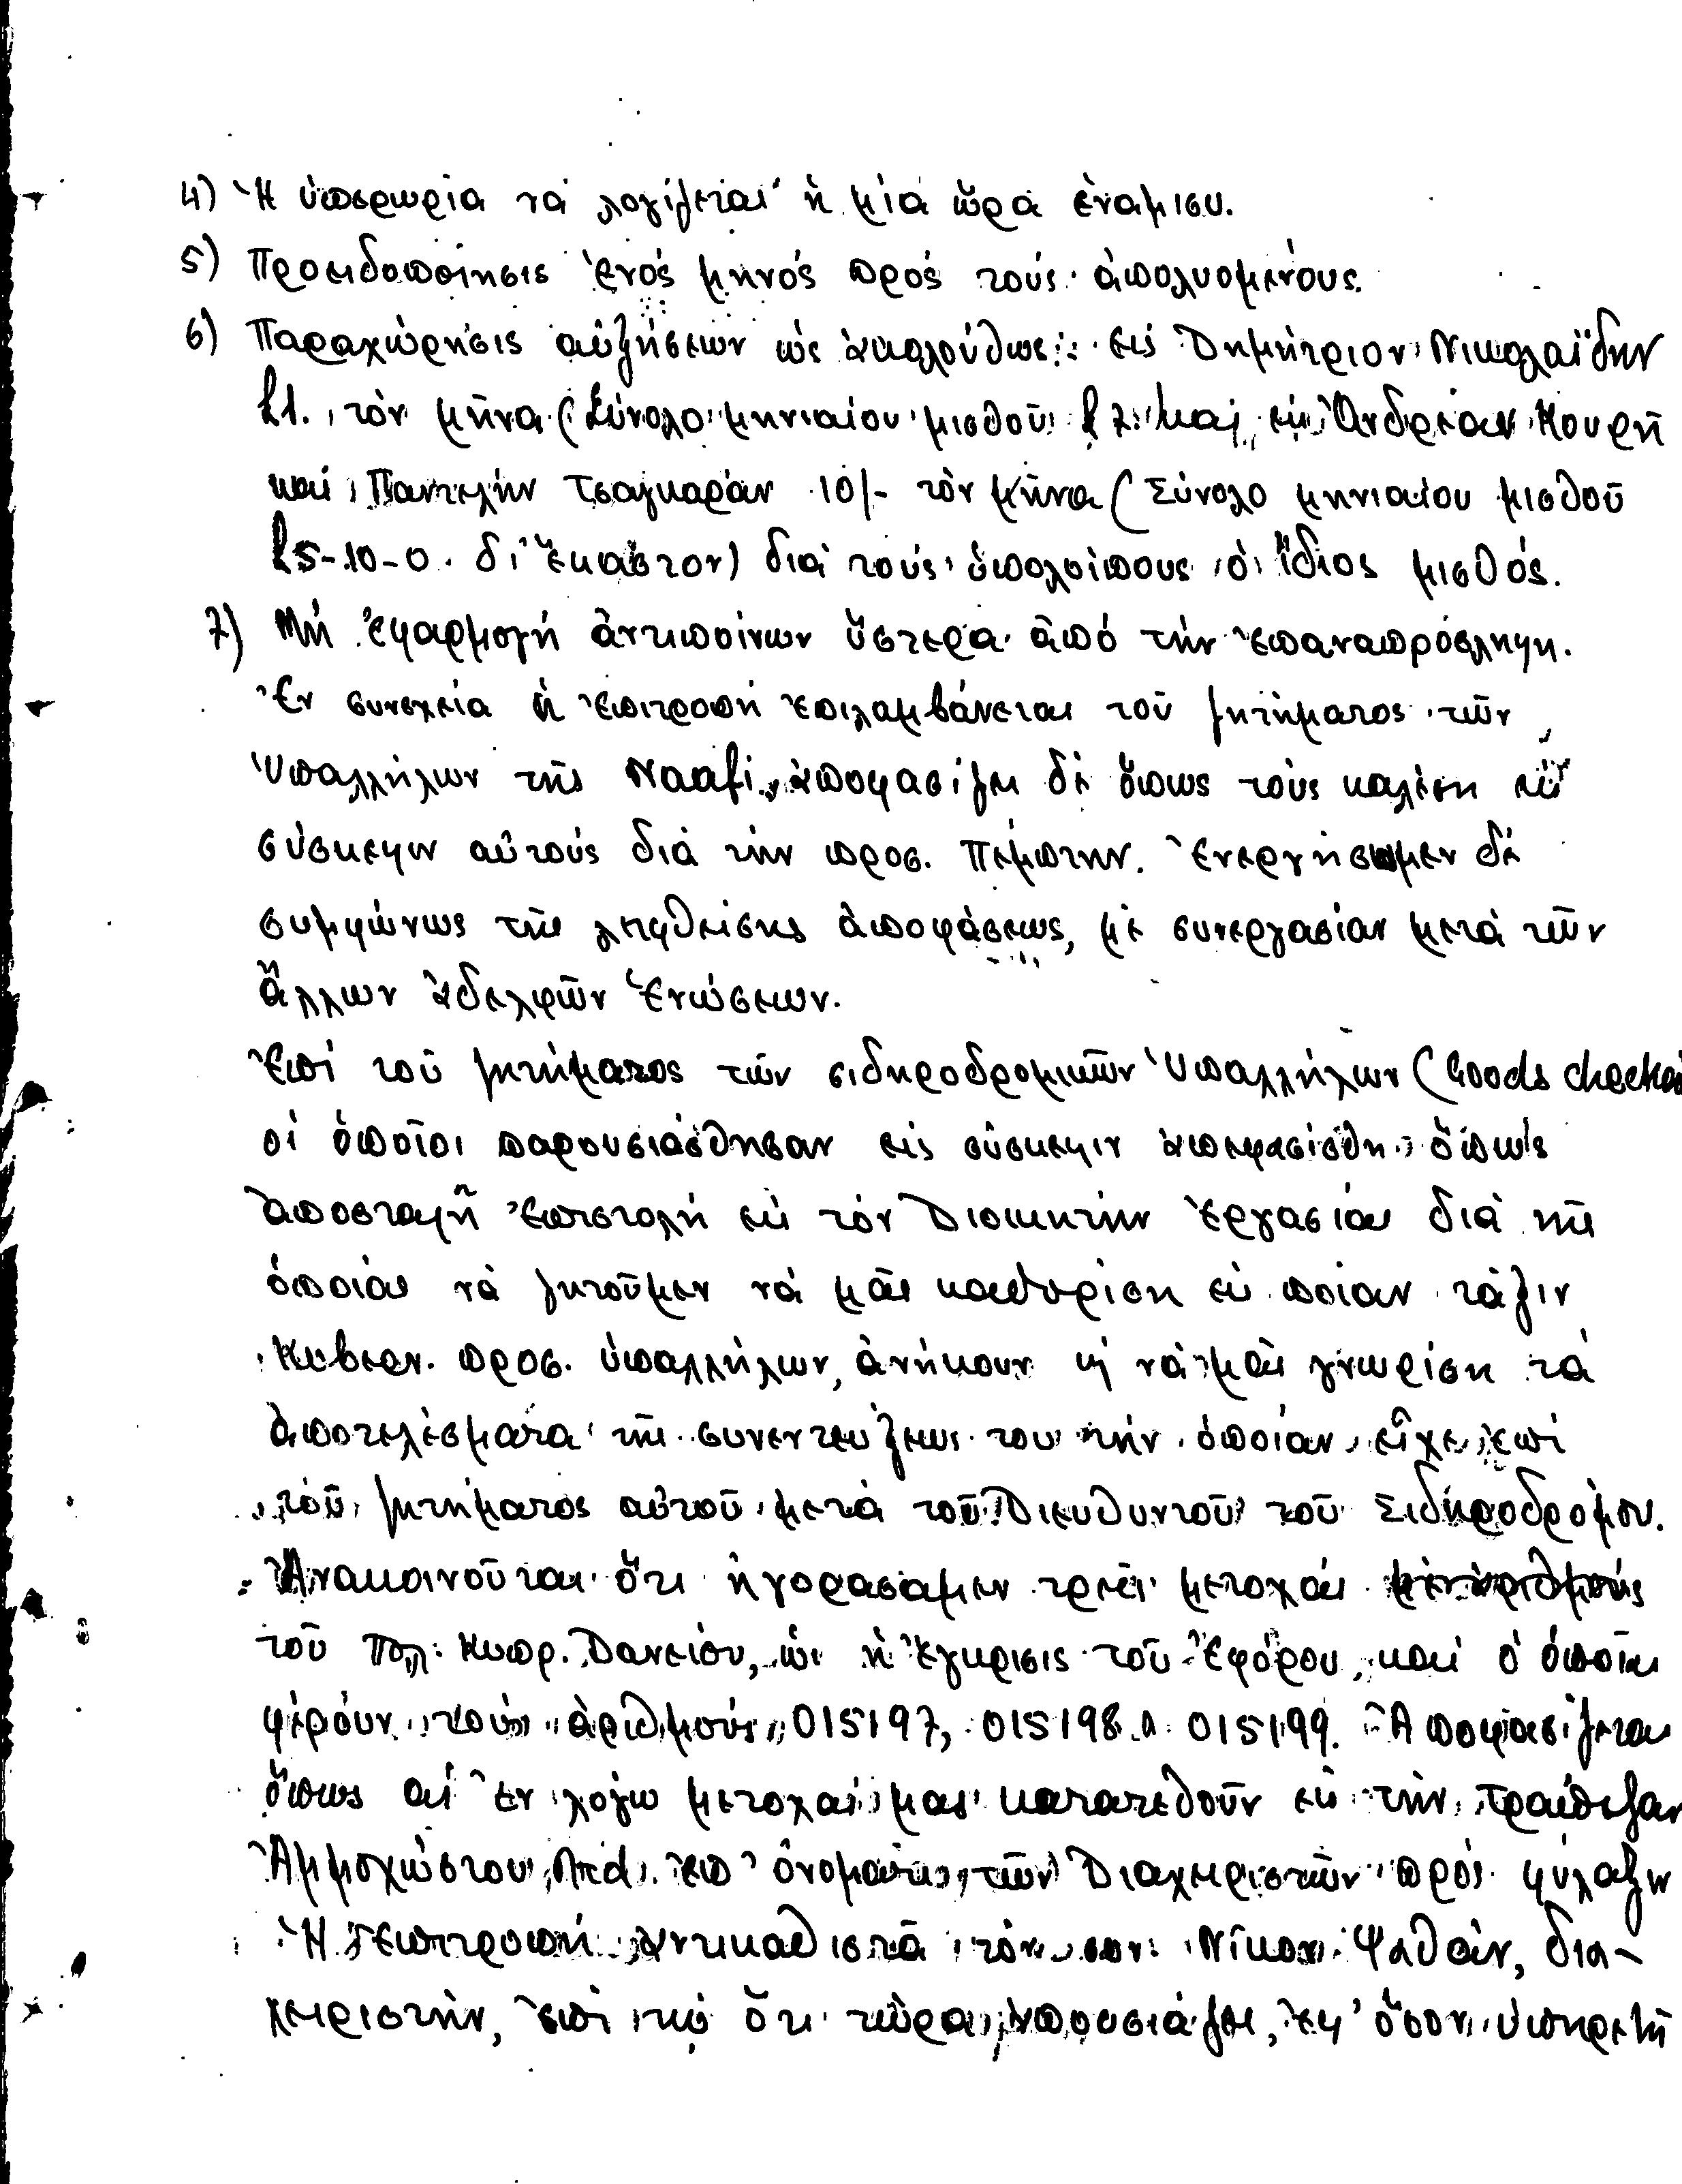 4) Ἡ ὑπερωρία νά λογίζεται ἡ μία ὥρα ἐνάμισυ.
5) Προειδοποίησις ἑνός μηνός πρός τούς ἀπολυομένους.
6) Παραχώρησις αὐξήσεων ὡς ἀκολούθως: εἰς Δημήτριον Νικολαΐδην
£1. τόν μῆνα (Σύνολο μηνιαίου μισθοῦ £7. καί εἰς Ἀνδρέαν Κουρῆ
καί Παντελήν Τσαγκαράν 10/- τόν μῆνα (Σύνολο μηνιαίου μισθοῦ
£5-10-0. δι' ἕκαστον) διά τούς ὑπολοίπους ὁ ἴδιος μισθός.
7) Μή ἐφαρμογή ἀντιποίνων ὕστερα ἀπό τήν ἐπαναπρόσληψη.
Ἐν συνεχεία ἡ ἐπιτροπή ἐπιλαμβάνεται τοῦ ζητήματος τῶν
Ὑπαλλήλων τῆς Naafi, ἀποφασίζει δέ ὅπως τούς καλέση εἰς
σύσκεψιν αὐτούς διά τήν προσ. Πέμπτην. Ἐνεργήσωμεν δέ
συμφώνως τῆς ληφθείσης ἀποφάσεως, μέ συνεργασίαν μετά τῶν
ἄλλων ἀδελφῶν Ἑνώσεων.
Ἐπί τοῦ ζητήματος τῶν σιδηροδρομικῶν Ὑπαλλήλων (Goods
οἱ ὁποῖοι παρουσιάσθησαν εἰς σύσκεψιν ἀπεφασίσθη ὅπως
ἀποσταλῆ ἐπιστολή εἰς τόν Διοικητήν Ἐργασίας διά τῆς
ὁποίας νά ζητοῦμεν νά μᾶς καθορίση εἰς ποίαν τάξιν
Κυβερν. προσ. ὑπαλλήλων, ἀνήκουν ἤ νά μᾶς γνωρίση τά
ἀποτελέσματα τῆς συνεντεύξεως του τήν ὁποίαν εἶχε ἐπί
τοῦ ζητήματος αὐτοῦ μετά τοῦ Διευθυντοῦ τοῦ Σιδηροδρόμου.
Ἀνακοινοῦται ὅτι ἠγοράσαμεν τρεῖς μετοχάς
τοῦ Πολ. Κυπρ. Δανείου, ὡς ἡ ἔγκρισις τοῦ Ἐφόρου, καί ὁ ὁποῖαι
φέρουν τούς ἀριθμούς 015197, 015198 015199. Ἀποφασίζεται
ὅπως αἱ ἐν λόγω μετοχαί μας κατατεθοῦν εἰς τήν Τράπεζαν
Ἀμμοχώστου Λτδ. ἐπ' ὀνόματι τῶν Διαχειριστῶν πρός φύλαξιν
Ἡ Ἐπιτροπή ἀντικαθιστᾶ τόν συν. Νίκον Ψαθάν, δια-
χειριστήν, ἐπί τῷ ὅτι τώρα ἀπουσιάζει, ἐφ' ὅσον ὑπηρετῆ